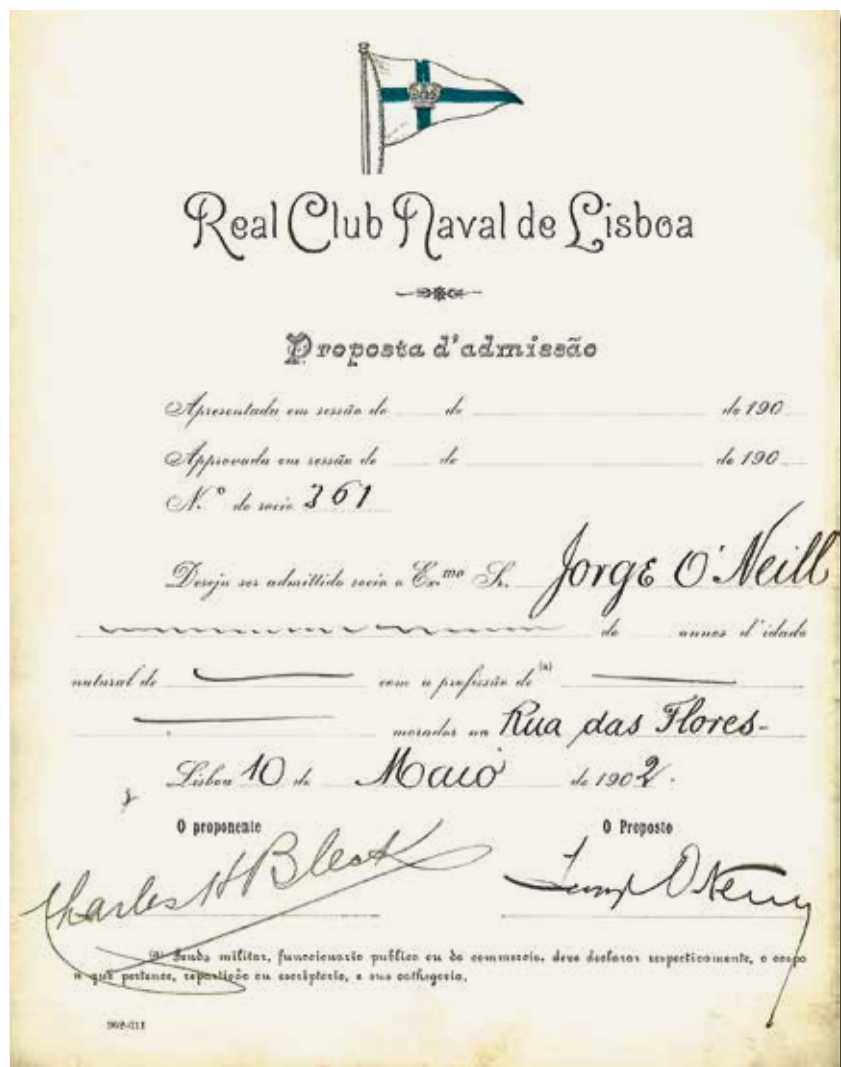 Real Club Naval de Lisboa
Proposta d'admissão
Apresentada em sessão de de de 190
Approvada em sessão de de de 190
N.º do socio 361
Deseja ser admittido socio o Ex.mo Sr. Jorge O'Neill
de annos d'idade
natural de com a profissão de (a)
morador na Rua das Flores-
Lisboa 10 de Maio de 1902.
O proponente O Proposto
Charles H Bleck Jorge O'Neill
(a) Sendo militar, funccionario publico ou do commercio, deve declarar respectivamente, o corpo
a que pertence, repartição ou escriptorio, e sua cathegoria.